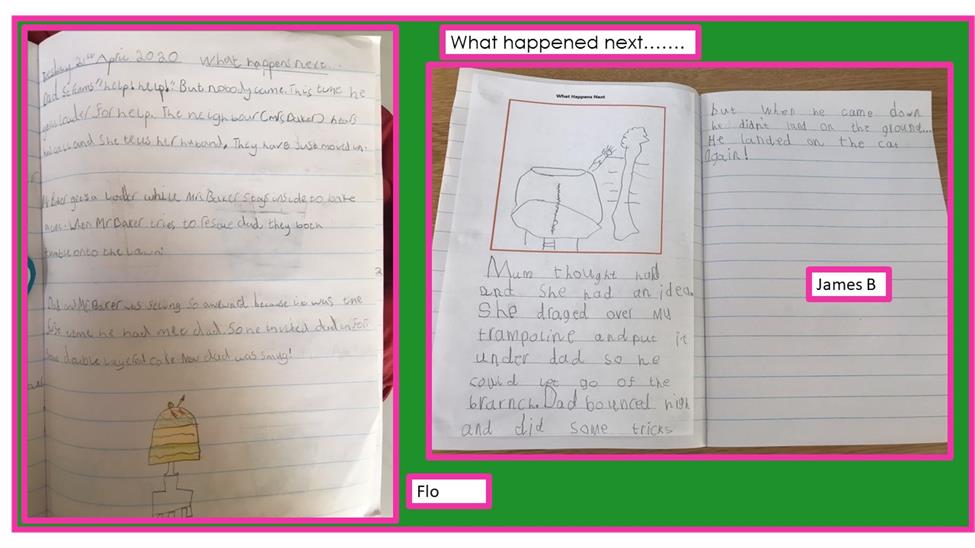 What happened next.......
21st April 2020 What happens next...
Dad screams "help! help!" But nobody came. This time he
louder for help. The neighbour (Mrs Baker) hears
and she tells her husband. They have just moved in.
Baker gets a ladder while Mrs Baker stays inside to bake
When Mr Baker tries to rescue dad they both
onto the lawn!
Mr Baker was so awkward because it was the
time he had met dad. So he invited dad in for
double layered cake now dad was smug!
Flo
What Happens Next
Mum thought hard
and she had an idea.
She draged over my
trampoline and put it
under dad so he
could let go of the
brarnch. Dad bounced high
and did some tricks
but when he came down
he didn't land on the ground...
He landed on the cat
again!
James B